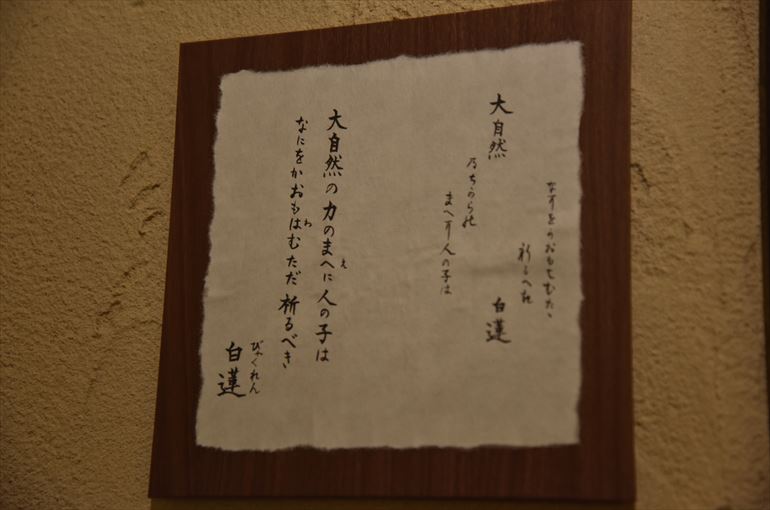 大自然
乃ちから能
まへ耳人の子は
な耳をかおもはむたゝ
祈るへ
白蓮
大自然の力のまへに人の子は
え
なにをかおもはむただ祈るべき
わ
白蓮
びゃくれん